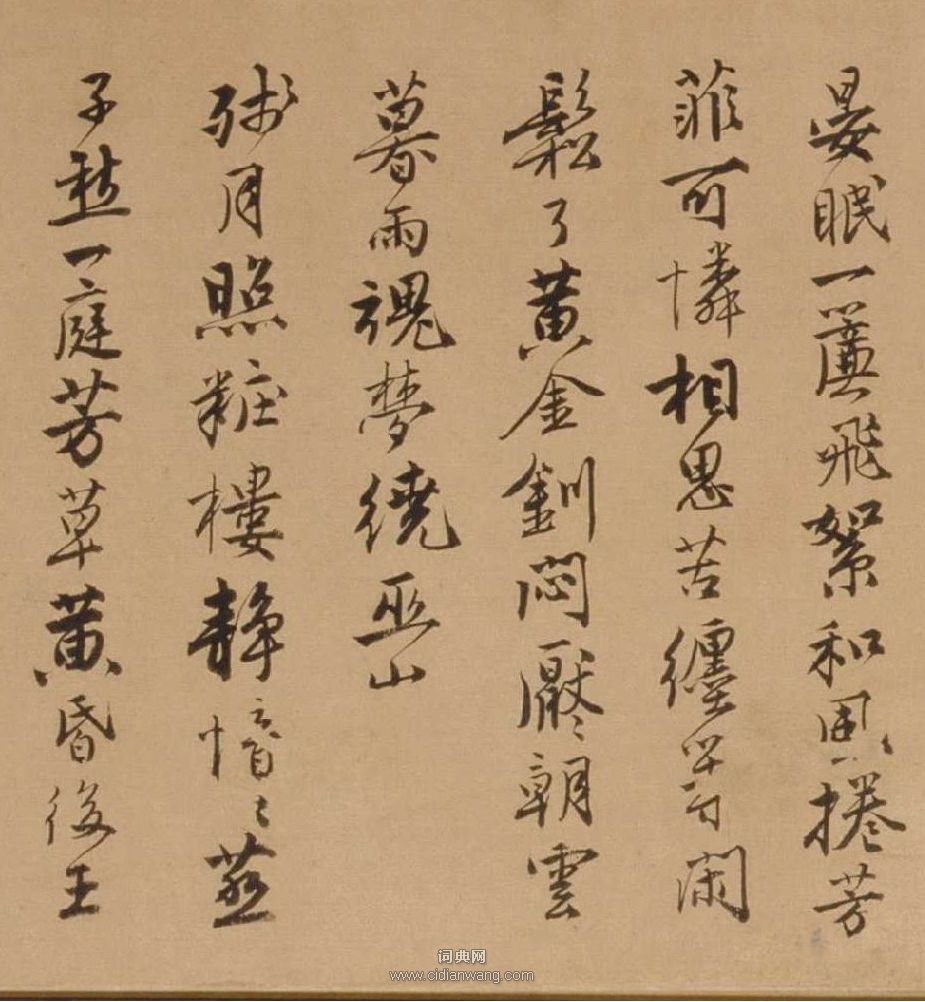 晏眠一簾飛絮和風捲芳
菲可憐相思苦纏等閑
鬆了黃金釧悶厭〻朝雲
暮雨魂夢繞巫山
殘月照粧樓靜愔〻燕
子愁一庭芳草黃昏後王
词典网
www.cidianwang.com